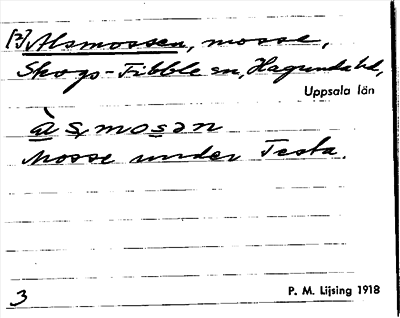 [?] Alsmossen, mosse,
Skogs-Tibble sn, Hagunda hd,
Uppsala län
à s, mosən
Mosse under Testa.
3
P. M. Lijsing 1918